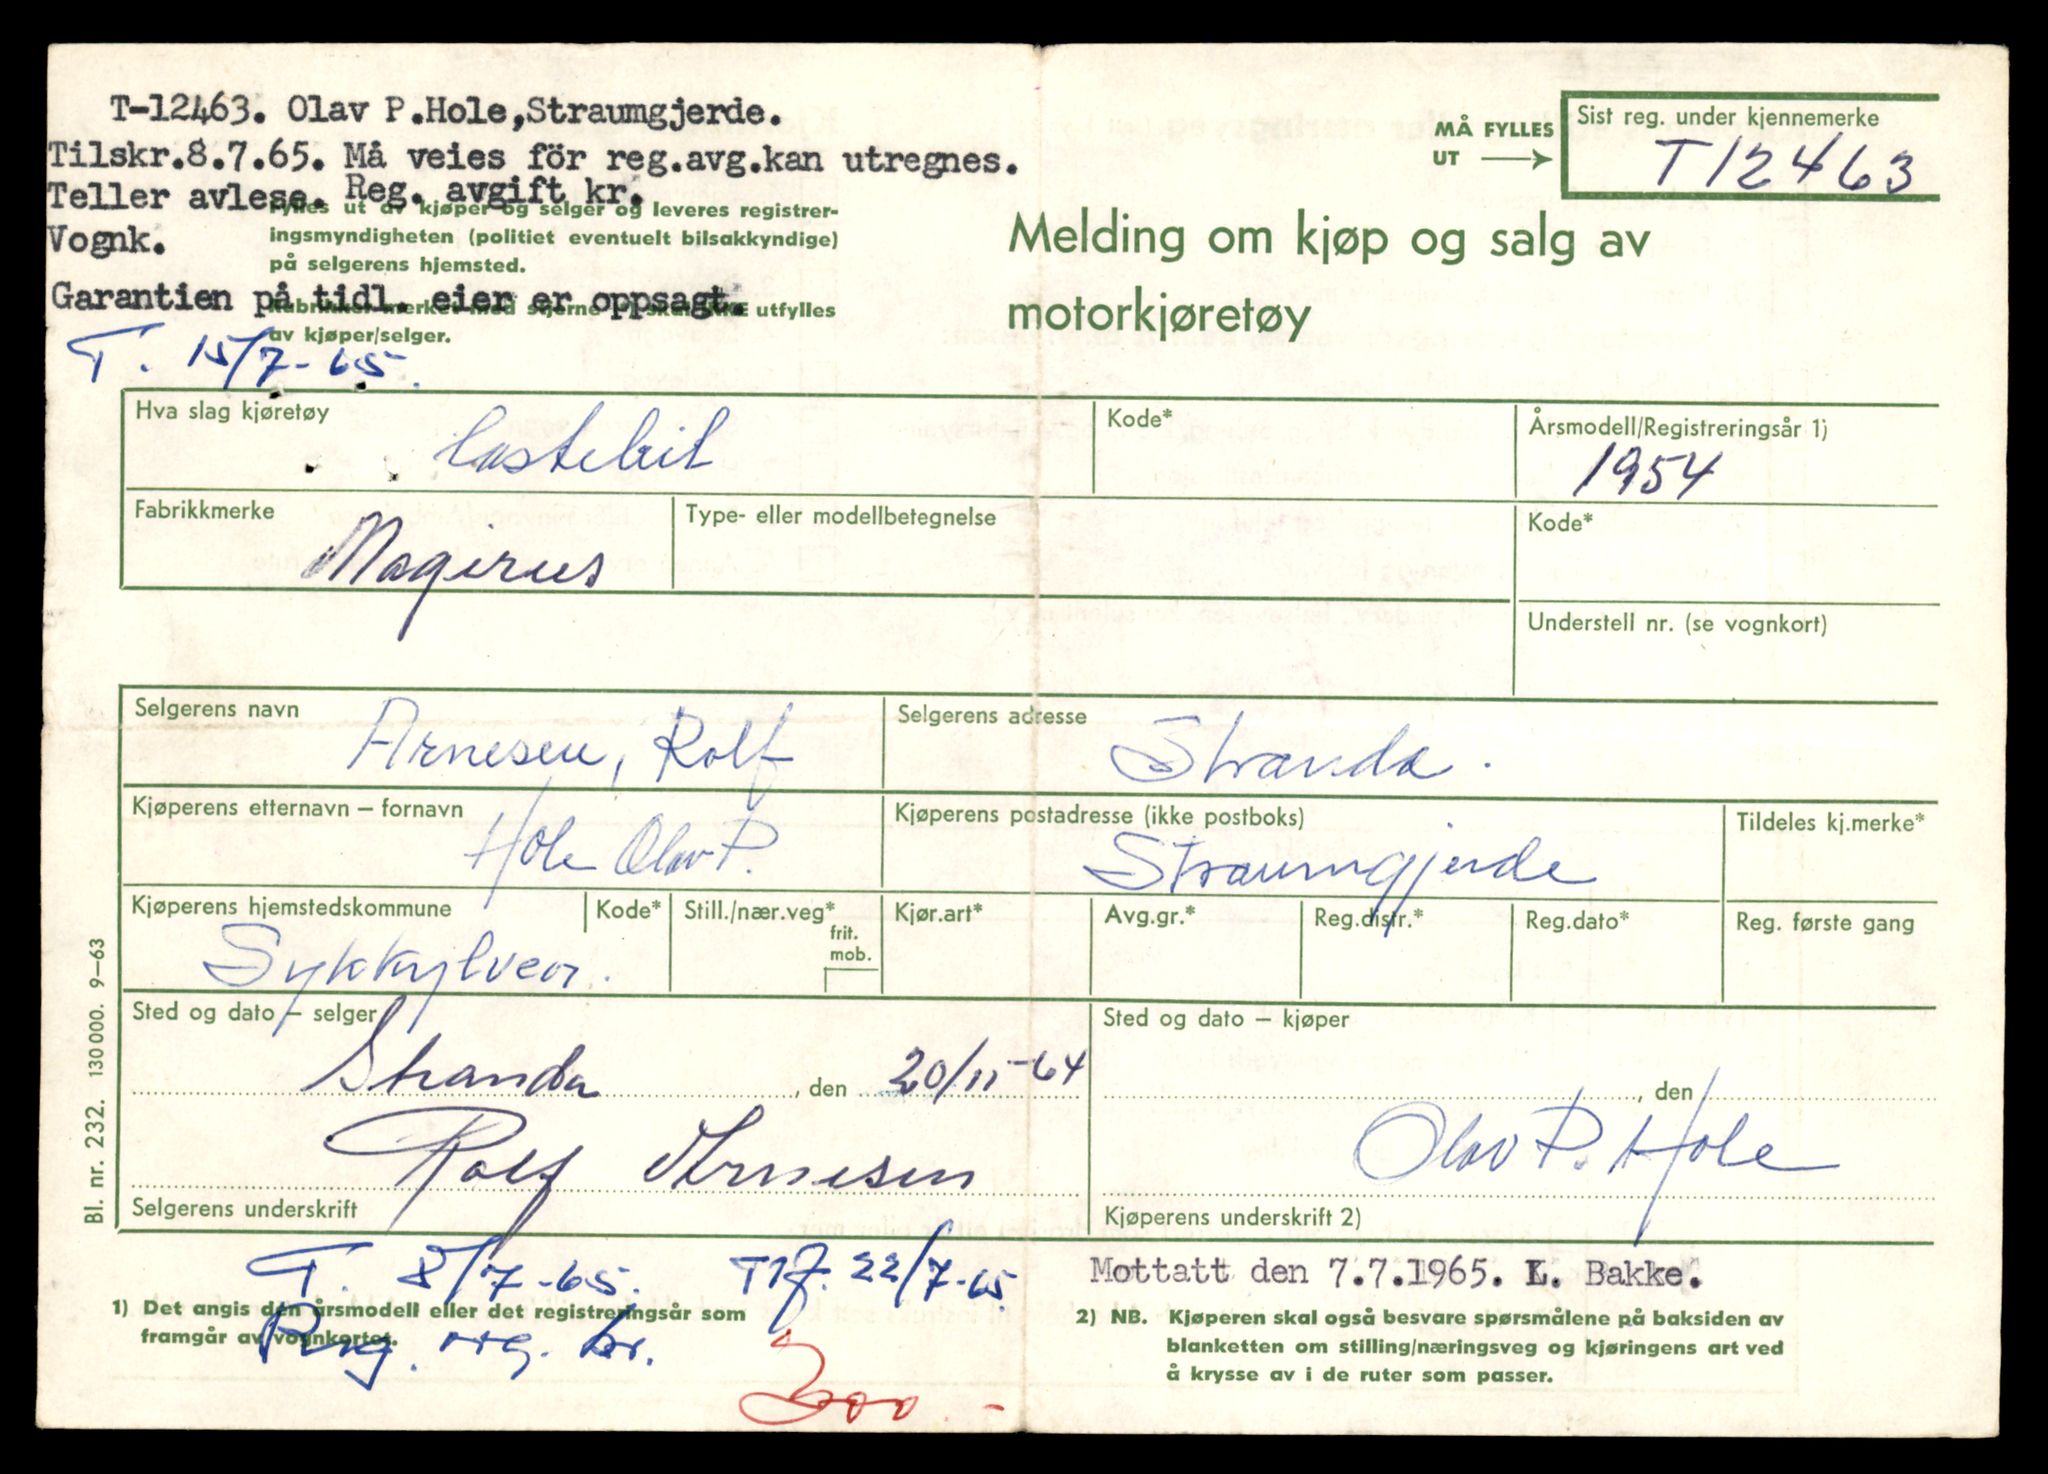 T-12463. Olav P.Hole,Straumgjerde.
Tilskr.8.7.65. Må veies för reg.avg.kan utregnes.
Teller avlese. Reg. avgift kr.
Vognk.
Garantien på tidl. eier er oppsagt.
Fylles ut av kjøper og selger og leveres registrer-
ingsmyndigheten (politiet eventuelt bilsakkyndige)
på selgerens hjemsted.
Rubrikker merket med stjerne skal IKKE utfylles
av kjøper/selger.
T. 15/7-65.
MÅ FYLLES
UT
Sist reg. under kjennemerke
T12463
Melding om kjøp og salg av
motorkjøretøy
Hva slag kjøretøy
Lastebil
Kode*
Årsmodell/Registreringsår 1)
1954
Fabrikkmerke
Magirus
Type- eller modellbetegnelse
Kode*
Understell nr. (se vognkort)
Selgerens navn
Arnesen, Rolf
Selgerens adresse
Stranda.
Kjøperens etternavn – fornavn
Hole Olav P.
Kjøperens postadresse (ikke postboks)
Straumgjerde
Tildeles kj.merke*
Kjøperens hjemstedskommune
Sykkylven.
Kode*
Still./nær.veg*
frit.
mob.
Kjør.art*
Avg.gr.*
Reg.distr.*
Reg.dato*
Reg. første gang
Sted og dato – selger
Stranda, den 20/11-64
Rolf Arnesen
Selgerens underskrift
Sted og dato – kjøper
, den
Olav P. Hole
Kjøperens underskrift 2)
Bl. nr. 232. 130 000. 9–63
T. 8/7-65. Tlf. 22/7-65
Mottatt den 7.7.1965. L. Bakke.
1) Det angis den årsmodell eller det registreringsår som
framgår av vognkortet.
Reg. avg. kr.
300 -
2) NB. Kjøperen skal også besvare spørsmålene på baksiden av
blanketten om stilling/næringsveg og kjøringens art ved
å krysse av i de ruter som passer.